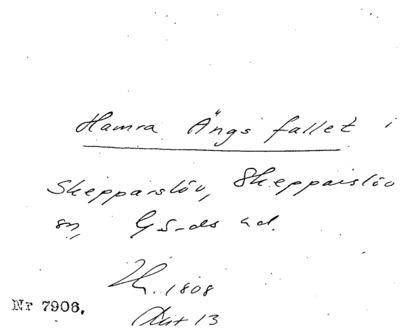 Hamra Ängsfallet i
Skepparslöv, Skepparslöv
sn, G-ds hd.
1808
Akt 13
Nr 7906.